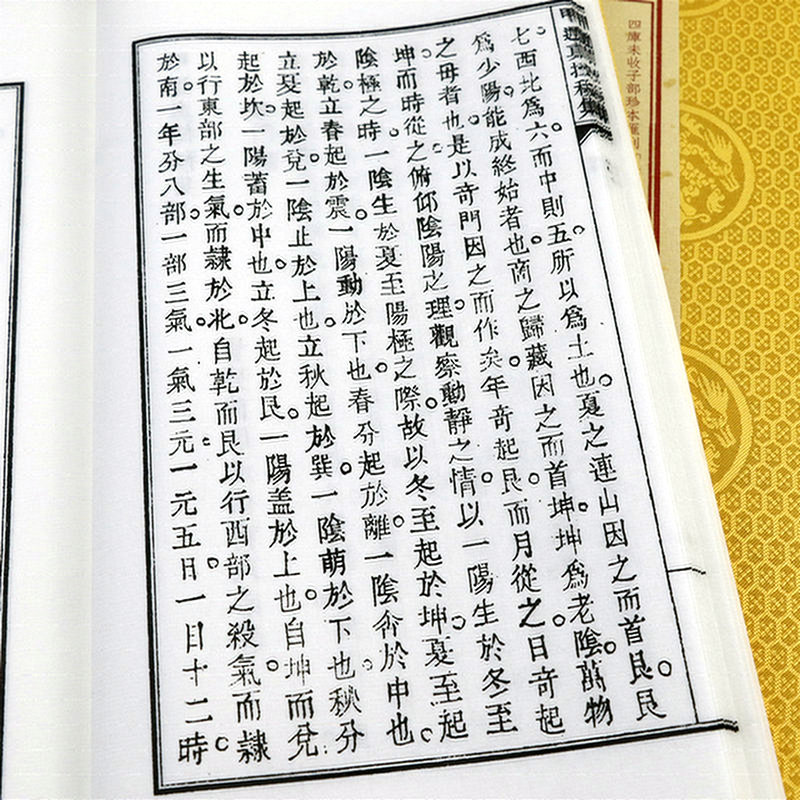 四庫未收子部珍本匯刊
甲遁真授秘集
七西北爲六。而中則五。所以爲土也。夏之連山因之而首艮。艮
爲少陽。能成終始者也。商之歸藏因之而首坤。坤爲老陰。萬物
之母者也。是以奇門因之而作矣。年奇起艮。而月從之。日奇起
坤。而時從之。俯仰陰陽之理。觀察動靜之情。以一陽生於冬至
陰極之時。一陰生於夏至陽極之際。故以冬至起於坤。夏至起
於乾。立春起於震。一陽動於下也。春分起於離。一陰弇於中也。
立夏起於兌。一陰止於上也。立秋起於巽。一陰萌於下也。秋分
起於坎。一陽蓄於中也。立冬起於艮。一陽盖於上也。自坤而兌
以行東部之生氣而隸於北。自乾而艮以行西部之殺氣而隸
於南。一年分八部。一部三氣。一氣三元。一元五日。一日十二時。